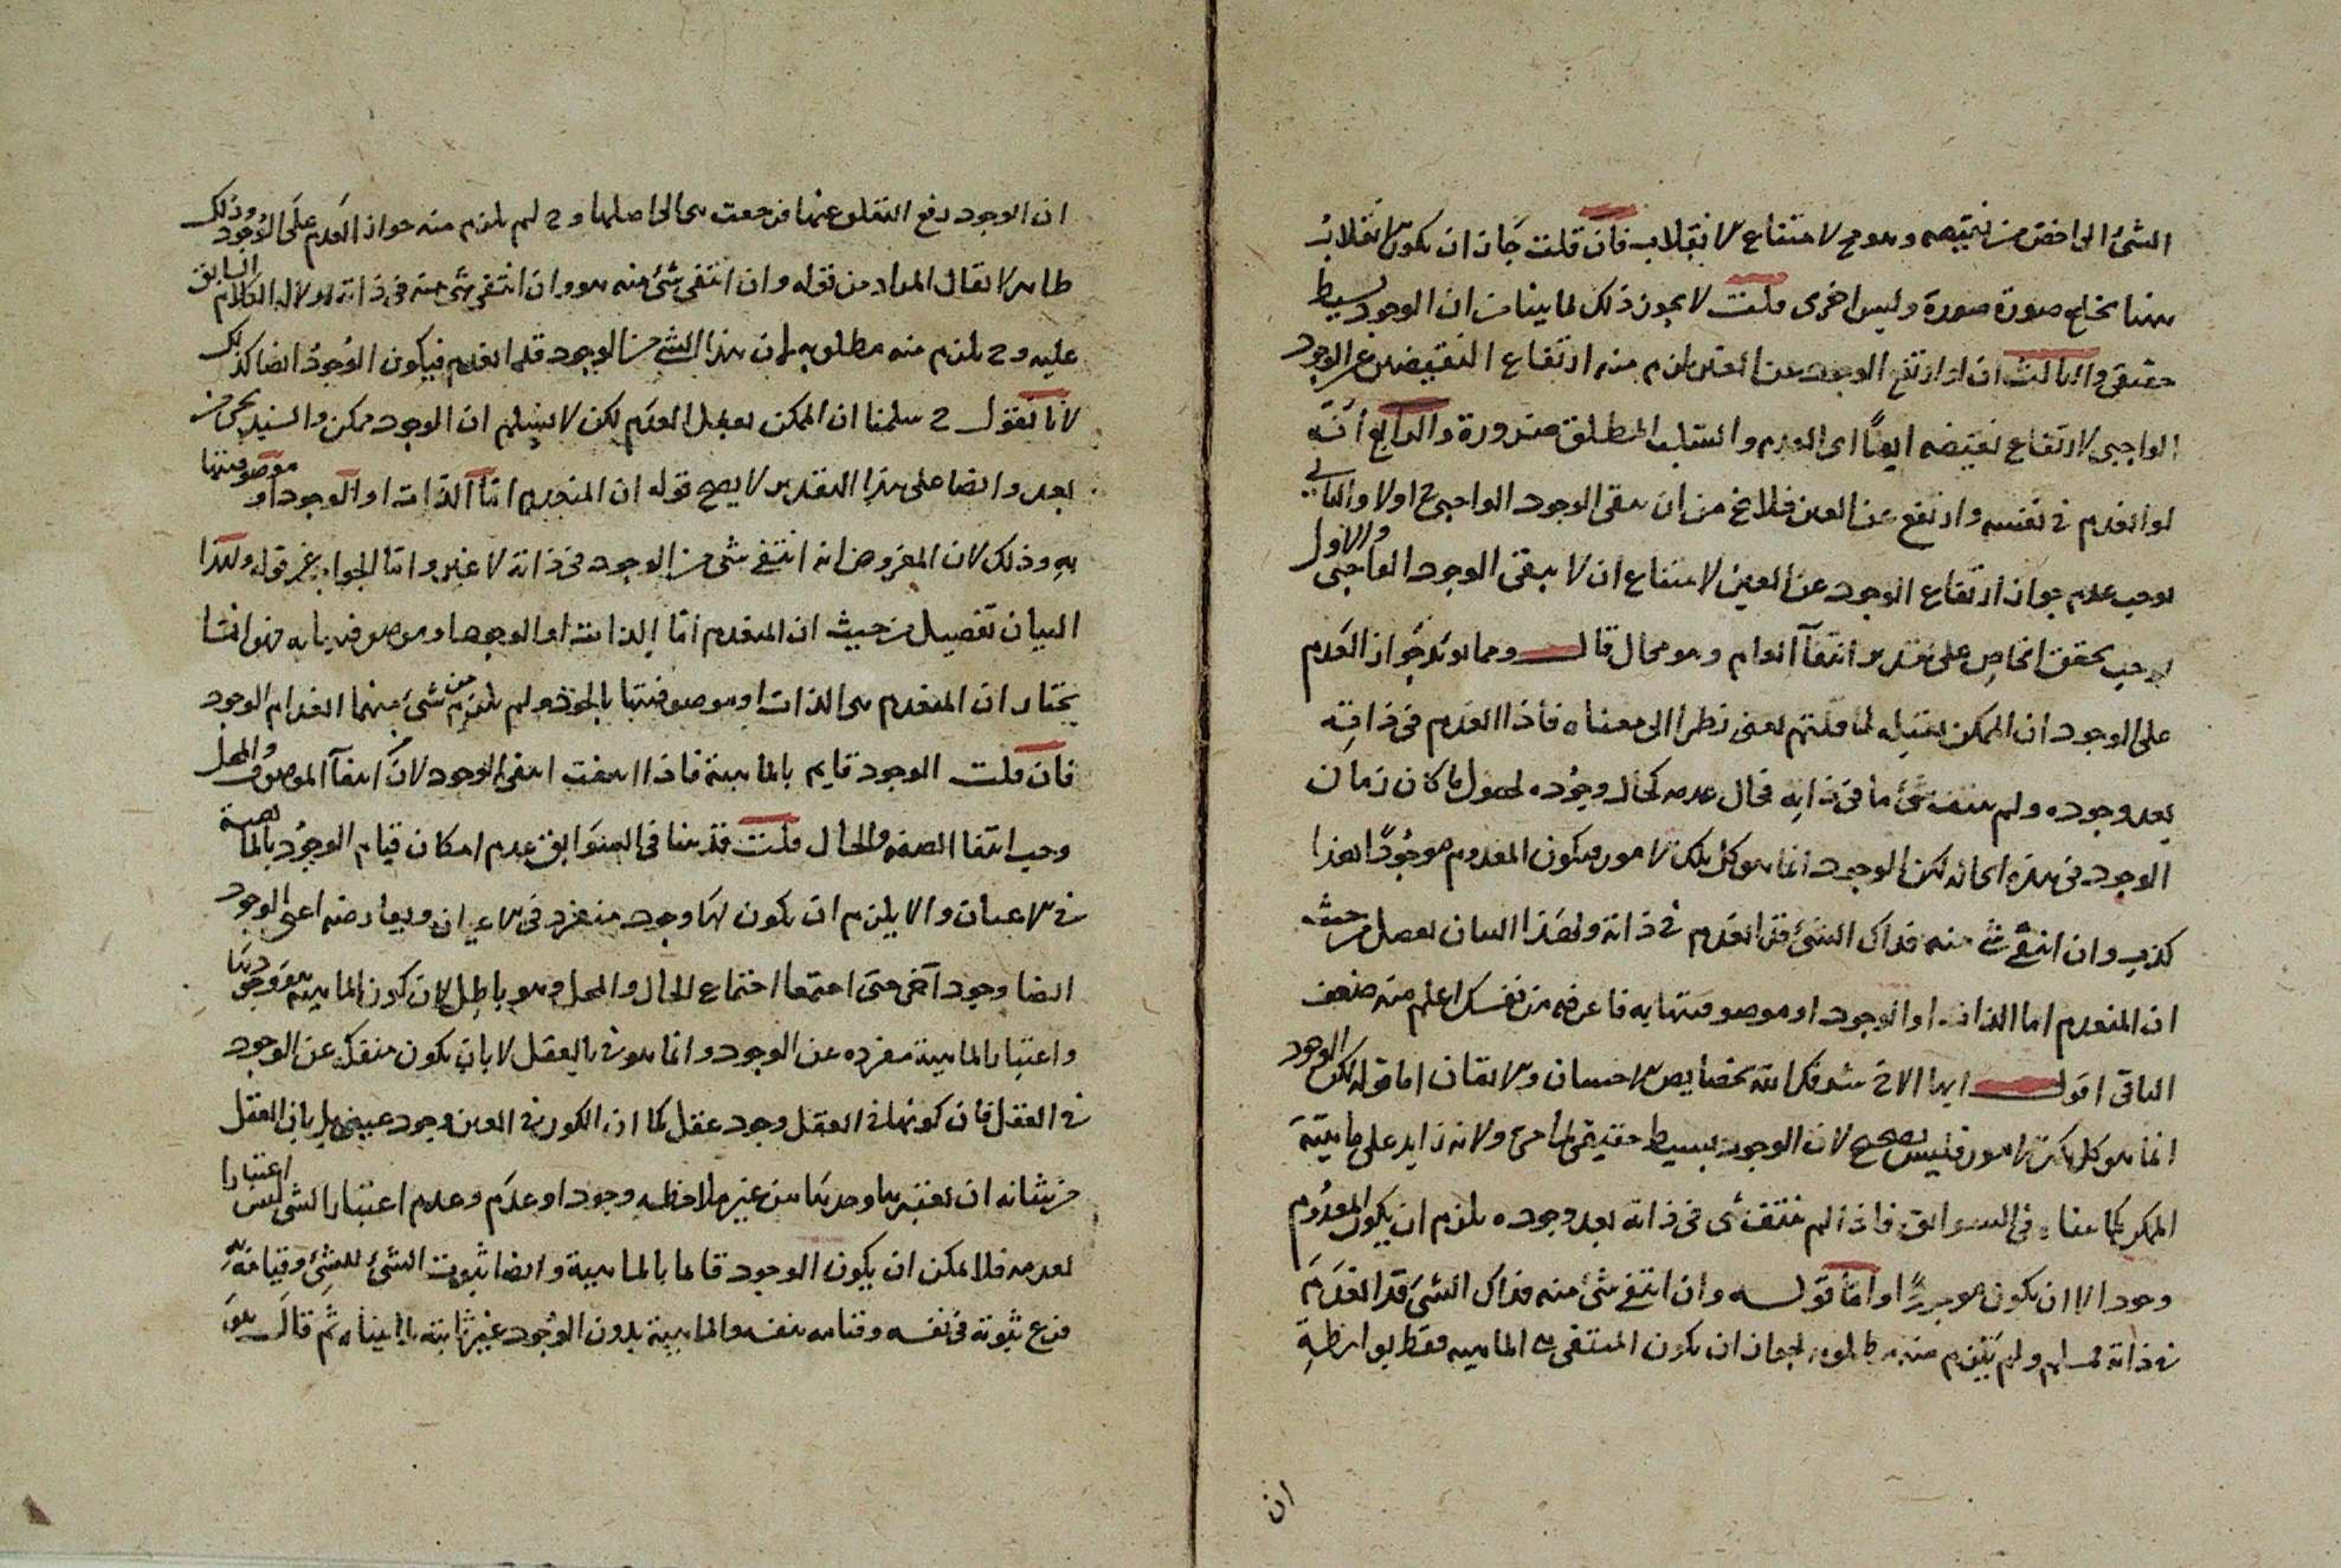 الشئ الى اخص من نقيضه وهو مح لامتناع الانقلاب فان قلت جاز ان يكون الانقلاب
ههنا بخلع صورة صورة ولبس اخرى قلت لا يجوز ذلك لما بينا من ان الوجود بسيط
حقيقى والثالث ان لو ارتفع الوجود عن العين يلزم منه ارتفاع النقيضين عن الوجود
الواجبى لارتفاع نقيضه ايضًا اى العدم والسلب المطلق ضرورة والرابع انه
لو انعدم فى نفسه وارتفع عن العين فلا يخ من ان يبقى الوجود الواجبى ح اولا والثانى
يوجب عدم جواز ارتفاع الوجود عن العين لامتناع ان لا يبقى الوجود الواجبى والاول
يوجب تحقق الخاص على تقدير انتفآ العام وهو محال قال ومما يؤيد جواز العدم
على الوجود ان الممكن يقبله لما قلتم يعنى نظرا الى معناه فاذا انعدم فى ذاته
بعد وجوده ولم ينتف شئ ما فى ذاته فحال عدمه كحال وجوده لحصول ما كان زمان
الوجود فى هذه الحالة لكن الوجود انما هو كل تلك الامور فيكون المعدوم موجودًا هذا
كذب وان انتفى شئ منه فذاك الشئ قد انعدم فى ذاته ولهذا البيان تفصيل من حيث
ان المنعدم اما الذات او الوجود او موصوفيتها به فاعرفه من نفسك اعلم منه ضعف
الباقى اقول ايها الاخ شرفك الله بخصايص الاحسان والاتقان اما قوله لكن الوجود
انما هو كل تلك الامور فليس بصحيح لان الوجود بسيط حقيقى لما مر ولانه زايد على ماهية
الممكن كما بيناه فى السوابق فاذا لم ينتف شى فى ذاته بعد وجوده يلزم ان يكون المعدوم
وجودا لا ان يكون موجودًا واما قوله وان انتفى شئ منه فذاك الشئ قد انعدم
فى ذاته فمسلم ولم يلزم منه مطلوبه لجواز ان يكون المنتفى هى الماهية فقط بواسطة
ان
ان الوجود رفع التعلق عنها فرجعت هى الى اصلها و ح لم يلزم منه جواز العدم على الوجود وذلك
ظاهر لا يقال المراد من قوله وان انتفى شئ منه هو وان انتفى شئ منه فى ذاته لدلالة الكلام السابق
عليه و ح يلزم منه مطلوبه لان هذا الشئ من الوجود قد انعدم فيكون الوجود ايضا كذلك
لانا نقول ح سلمنا ان الممكن يقبل العدم لكن لا نسلم ان الوجود ممكن والسند يجئ من
بعد وايضا على هذا التقدير لا يصح قوله ان المنعدم اما الذات او الوجود او موصوفيتها
به وذلك لان المفروض انه انتفى شئ من الوجود فى ذاته لا غير واما الجواب عن قوله ولهذا
البيان تفصيل من حيث ان المنعدم اما الذات او الوجود او موصوفيتها به فهو انا
نختار ان المنعدم هى الذات او موصوفيتها بالوجود ولم يلزم من شئ منهما انعدام الوجود
فان قلت الوجود قايم بالماهية فاذا انتفت انتفى الوجود لان انتفآ الموصوف والمحل
وجب انتفا الصفة والحال قلت قد بينا فى السوابق عدم امكان قيام الوجود بالماهية
فى الاعيان والا يلزم ان يكون لها وجود منفرد فى الاعيان ولعارضه اعنى الوجود
ايضا وجود آخر حتى اجتمعا اجتماع الحال والمحل وهو باطل لان كون الماهية هو وجودها
واعتبار الماهية مفردة عن الوجود وانما هو فى العقل لا بان يكون منفكة عن الوجود
فى العقل فان كونها فى العقل وجود عقلى كما ان الكون فى العين وجود عينى بل بان العقل
من شانه ان يعتبرها وحدها من غير ملاحظة وجود او عدم وعدم اعتبار الشئ ليس اعتبارا
لعدمه فلا يمكن ان يكون الوجود قايما بالماهية وايضا ثبوت الشئ للشئ وقيامه به
فرع ثبوته فى نفسه وقيامه بنفسه والماهية بدون الوجود غير ثابتة لما بيناه ثم قال